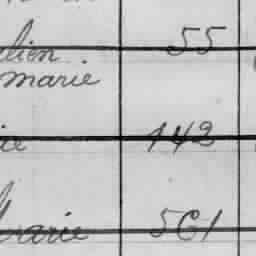 lien 55
marie
ie 142
Marie 561